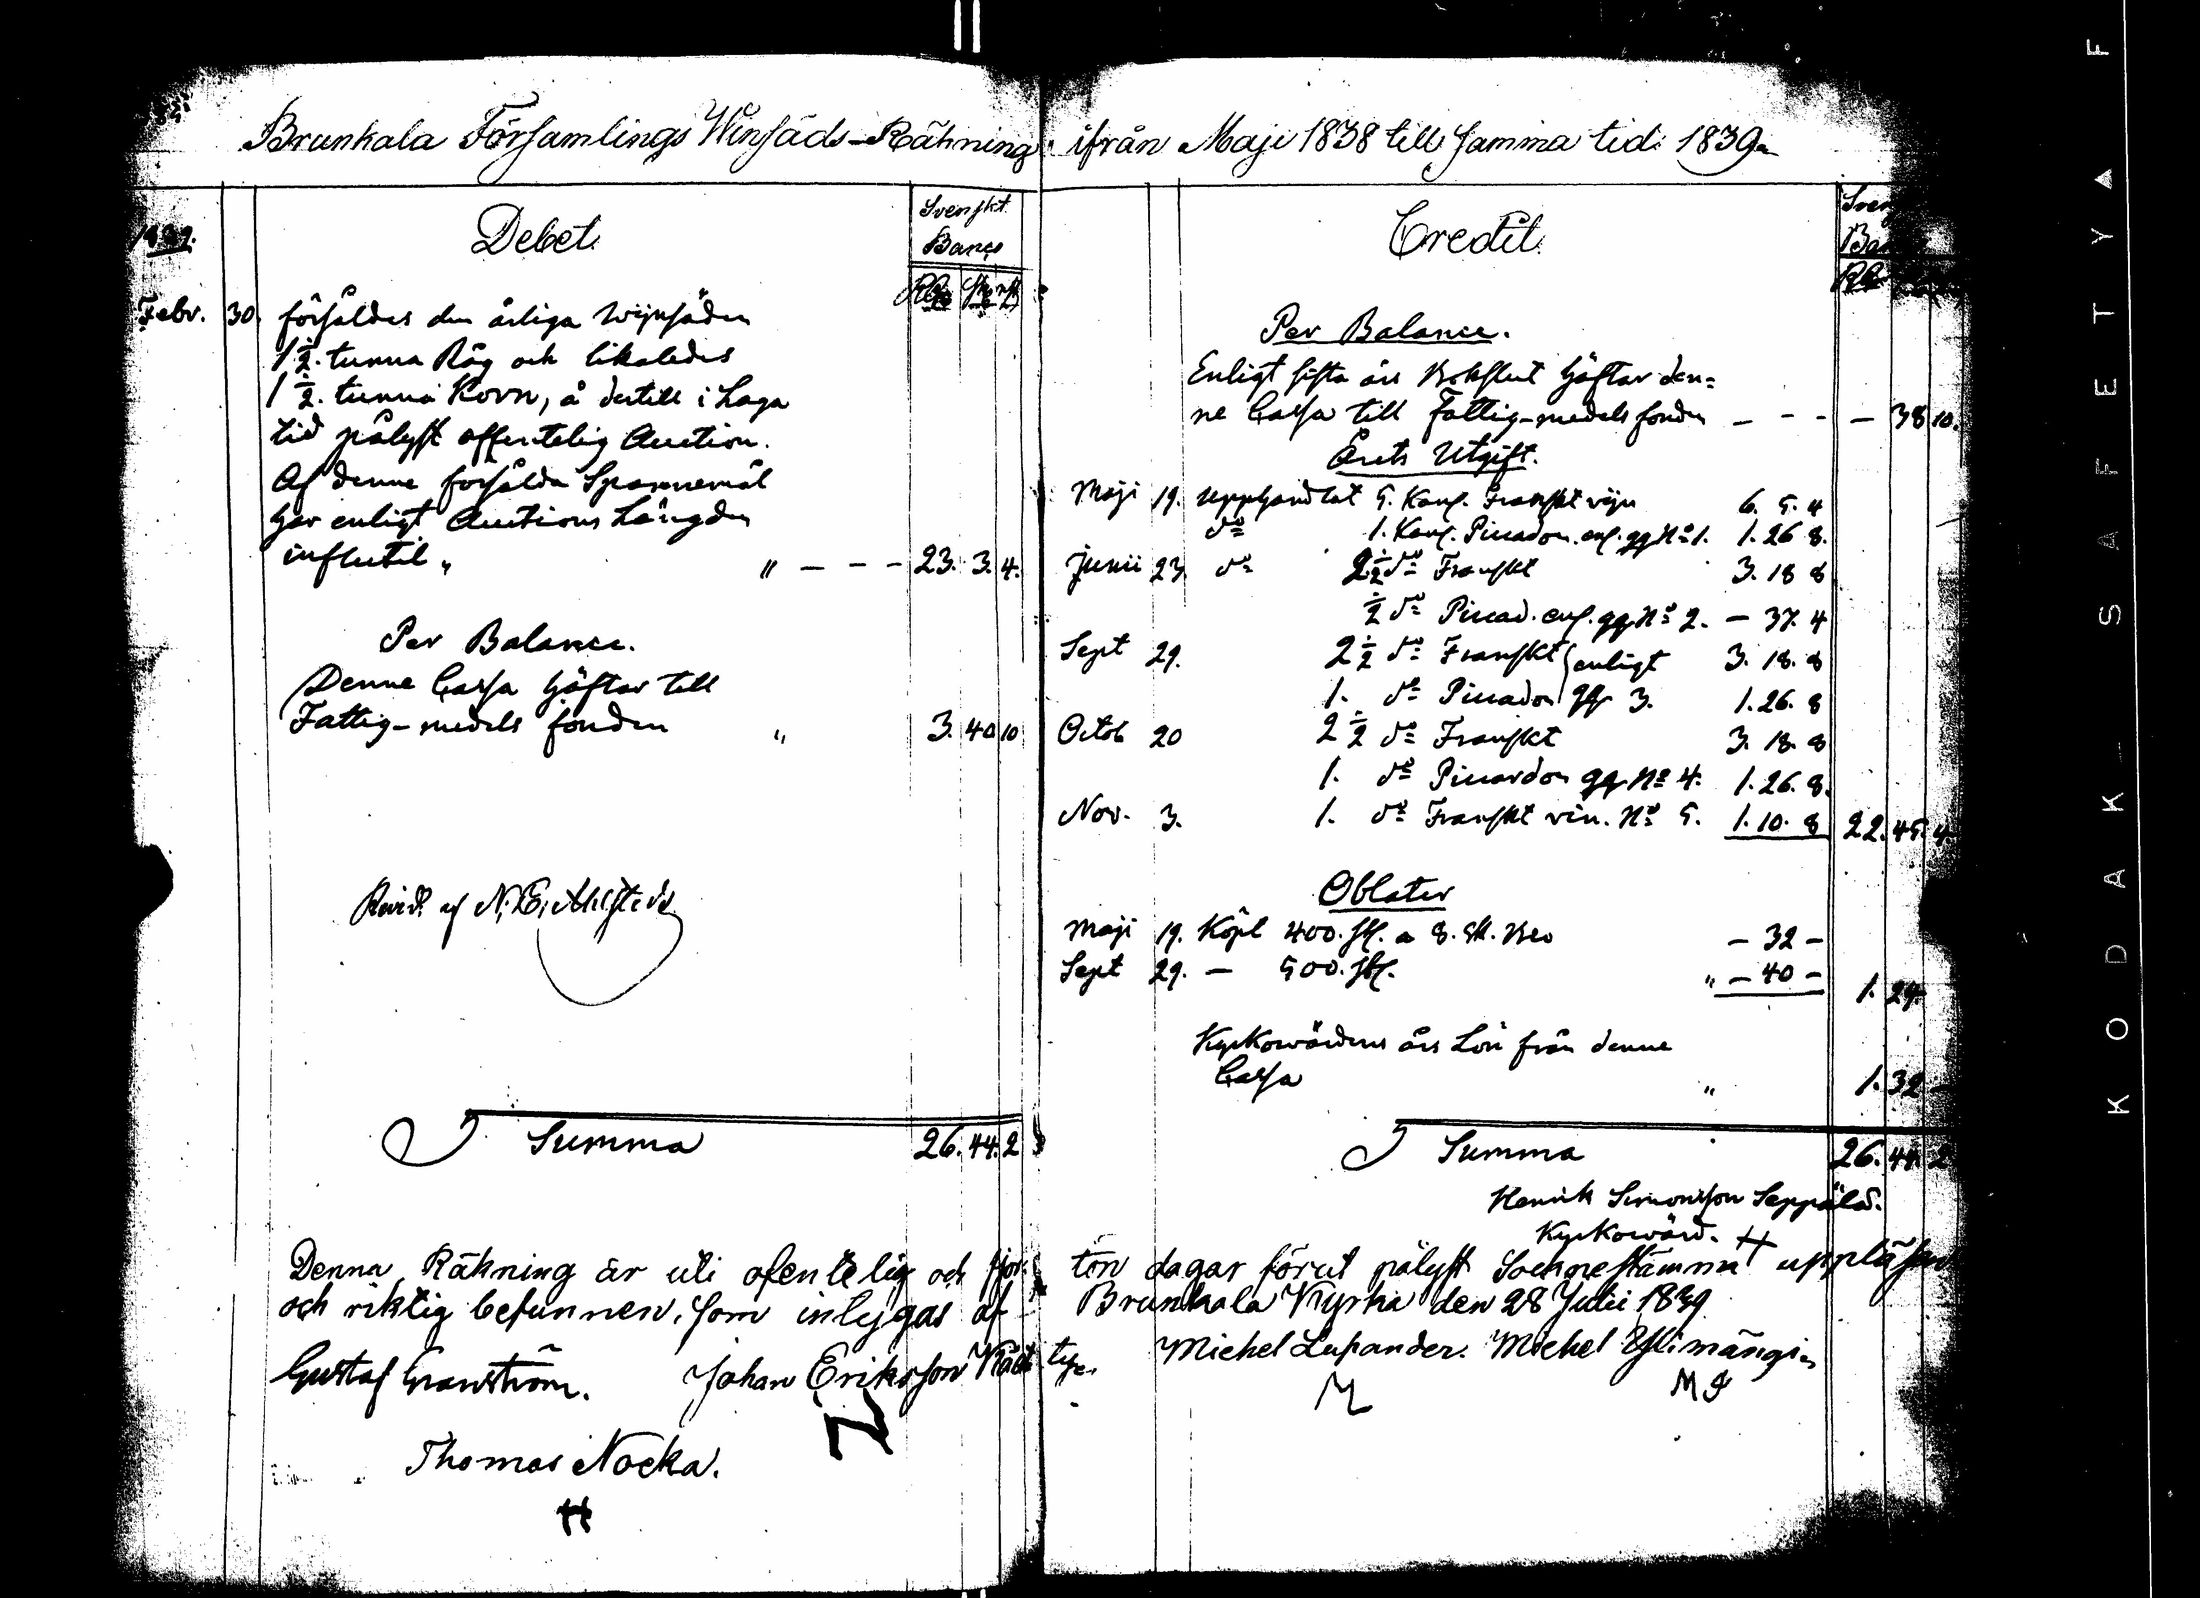 Brunkala Församlings Winsäds-Räkning ifrån Maji 1838 till samma tid 1839
Debet.
Svenskt
Banco
1839.
Febr. 30. försåldes den årliga wijnsäden
1 1/2. tunna Råg och likaledes
1 1/2. tunna Korn, å dertill i Laga
tid pålyst offentelig Auction.
Af denne försålda Spannemål
har enligt Auctions Längden
influtit " " - - - 23. 3. 4.
Per Balance.
Denne Cassa häftar till
Fattig-medels fonden " 3. 40 10
Revid. af N. E. Ahlstedt
Summa 26. 44. 2
Credit.
Per Balance.
Enligt sista års Bokslut häftar den=
ne Cassa till Fattig-medels fonden - - - - 38 10.
Årets Utgift.
Maji 19. upphandlat 5. Kan. Franskt vijn 6. 5. 4
do 1. Kan. Piccadon. enl. qq No 1. 1. 26 8.
Junii 23. do 2 1/2 do Franskt 3. 18 8
1/2 do Piccad. enl. qq No 2. - 37. 4
Sept 29. 2 1/2 do Franskt enligt 3. 18. 8
1. do Piccadon qq 3. 1. 26. 8
Octob 20 2 1/2 do Franskt 3. 18. 8
1. do Piccardon qq No 4. 1. 26. 8.
Nov. 3. 1. do Franskt vin. No 5. 1. 10. 8 22. 45. 4
Oblater
Maji 19. Köpt 400. st. a 8. sk. Bco - 32 -
Sept 29. - 500. st. " - 40 - 1. 24.
Kyrkowärdens års Lön från denne
Cassa " 1. 32 -
Summa 26. 44. 2
Henrik Simonsson Seppälä.
Kyrkowärd.
Denna Räkning är uti ofentelig och fjorton dagar förut pålyst Socknestämma uppläsen
och riktig befunnen, som intygas af Brunkala Kyrka den 28 Julii 1839
Gustaf Granström. Johan Eriksson Michel Lupander. Michel Yllimängi
M MI
Thomas Nocka.
KODAK SAFETY ▲ F